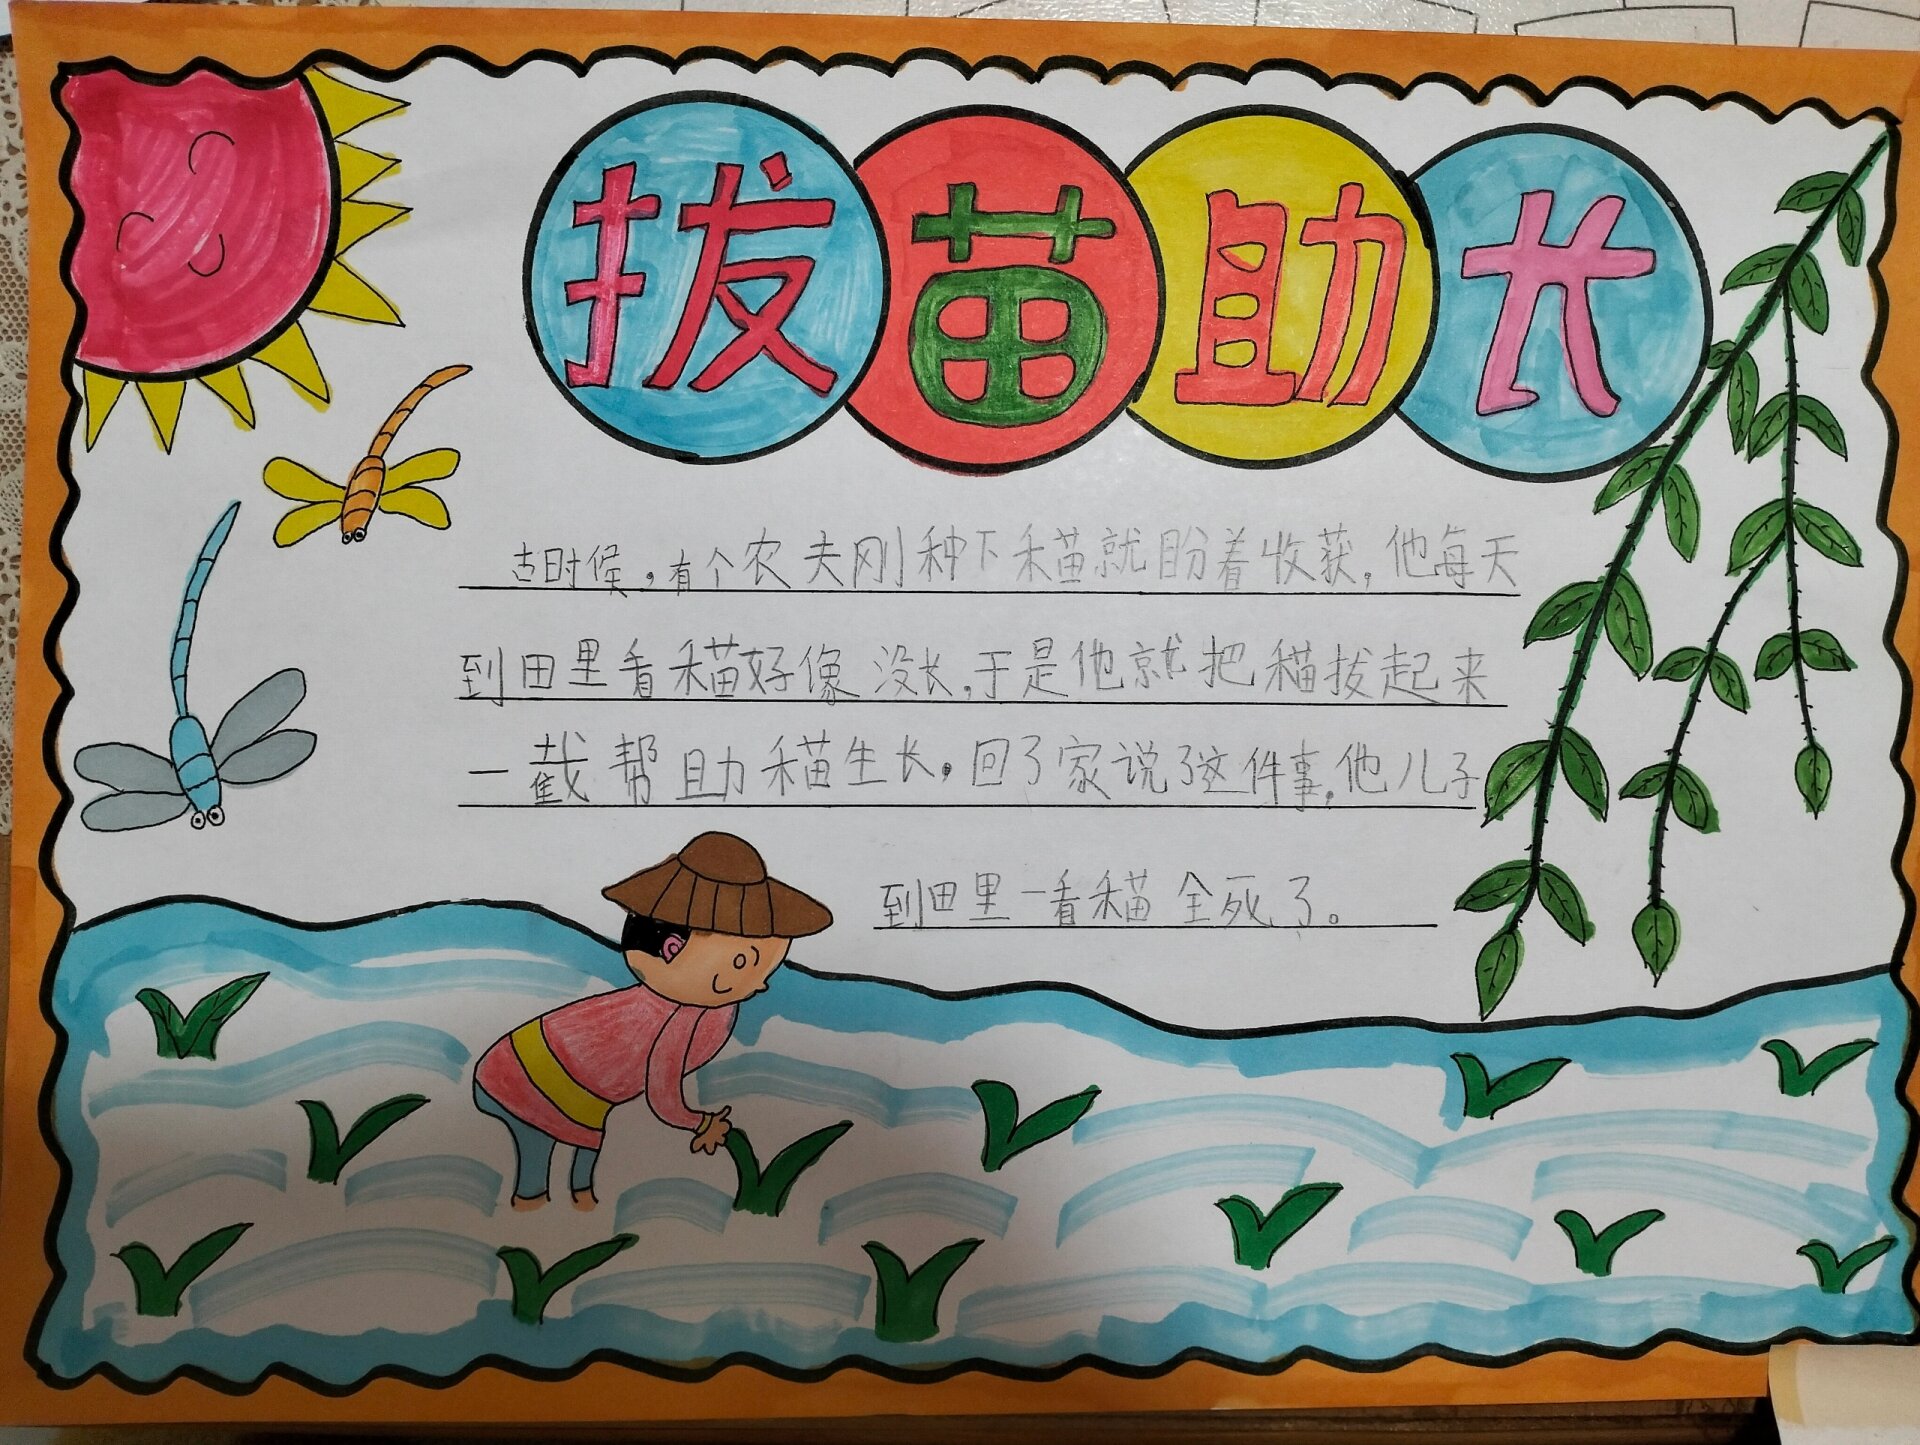 拔苗助长
古时候，有个农夫刚种下禾苗就盼着收获，他每天
到田里看禾苗好像没长，于是他就把禾苗拔起来
一截帮助禾苗生长，回了家说了这件事，他儿子
到田里一看禾苗全死了。